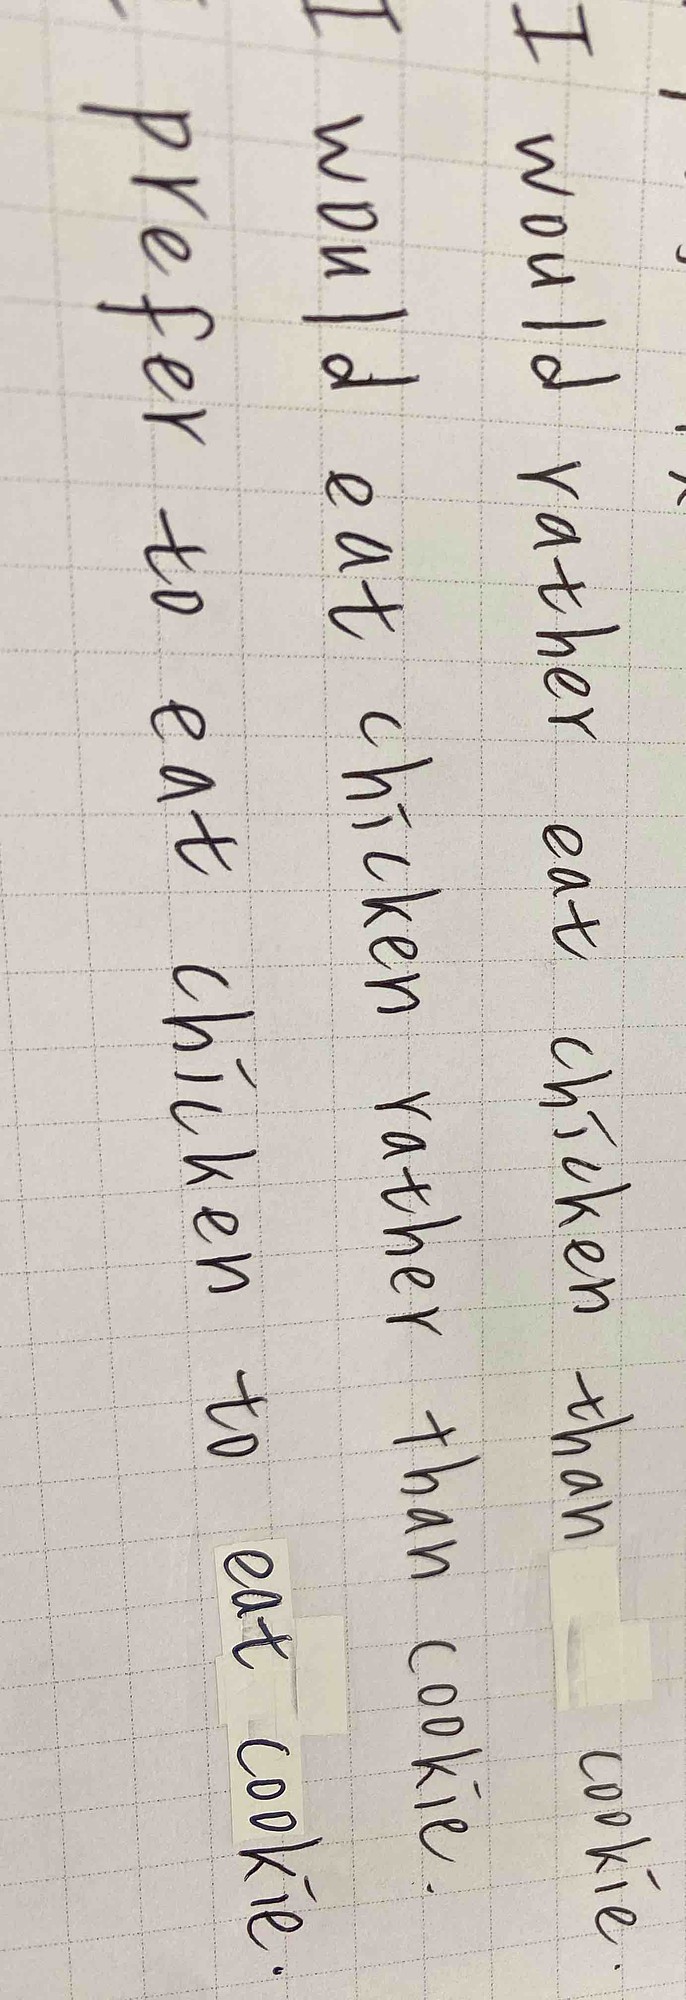 I would rather eat chicken than cookie.
I would eat chicken rather than cookie.
I prefer to eat chicken to eat cookie.